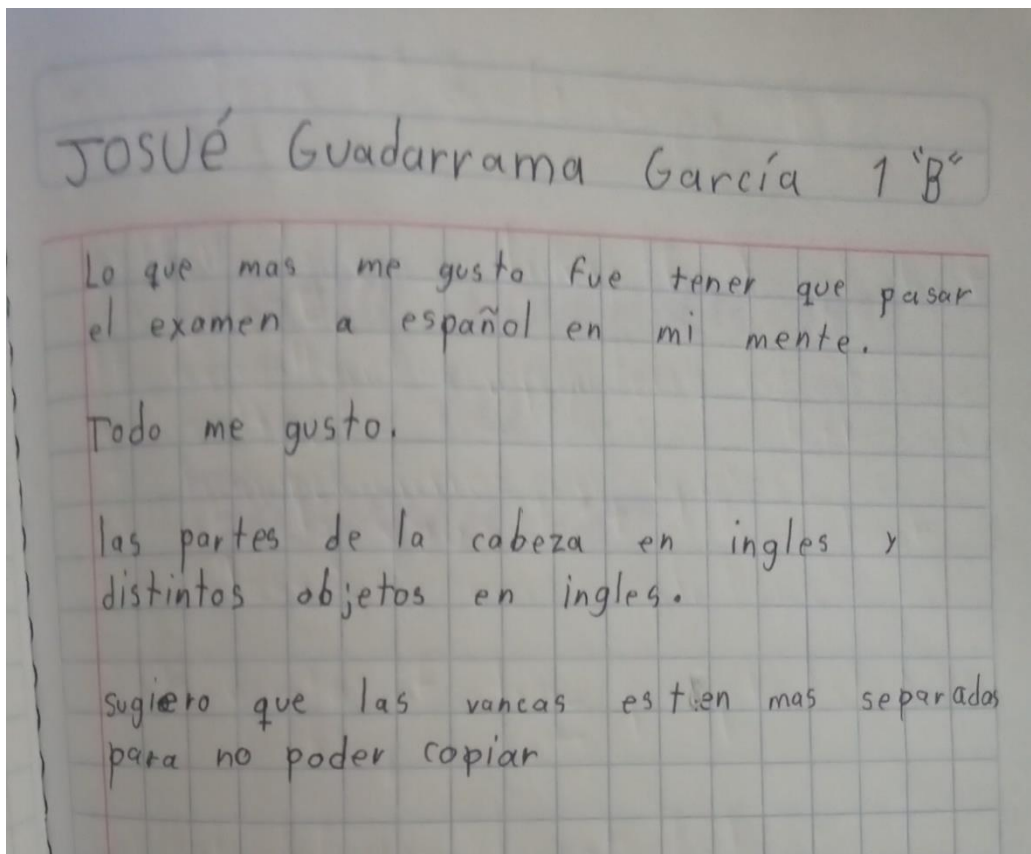 Josué Guadarrama García 1 "B"
Lo que mas me gusto fue tener que pasar
el examen a español en mi mente.
Todo me gusto.
las partes de la cabeza en ingles y
distintos objetos en ingles.
sugiero que las vancas estien mas separadas
para no poder copiar